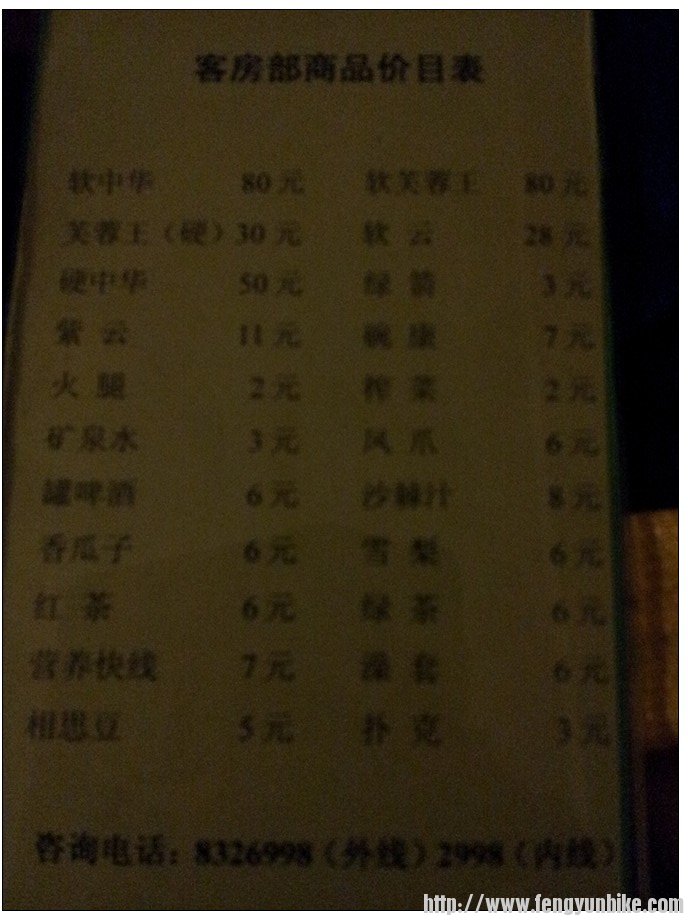 客房部商品价目表
软中华 80元 软芙蓉王 80元
芙蓉王（硬）30元 软云 28元
硬中华 50元 绿箭 3元
紫云 11元 碗康 7元
火腿 2元 榨菜 2元
矿泉水 3元 凤爪 6元
罐啤酒 6元 沙棘汁 8元
香瓜子 6元 雪梨 6元
红茶 6元 绿茶 6元
营养快线 7元 澡套 6元
相思豆 5元 扑克 3元
咨询电话：8326998（外线）2998（内线）
http://www.fengyunhike.com